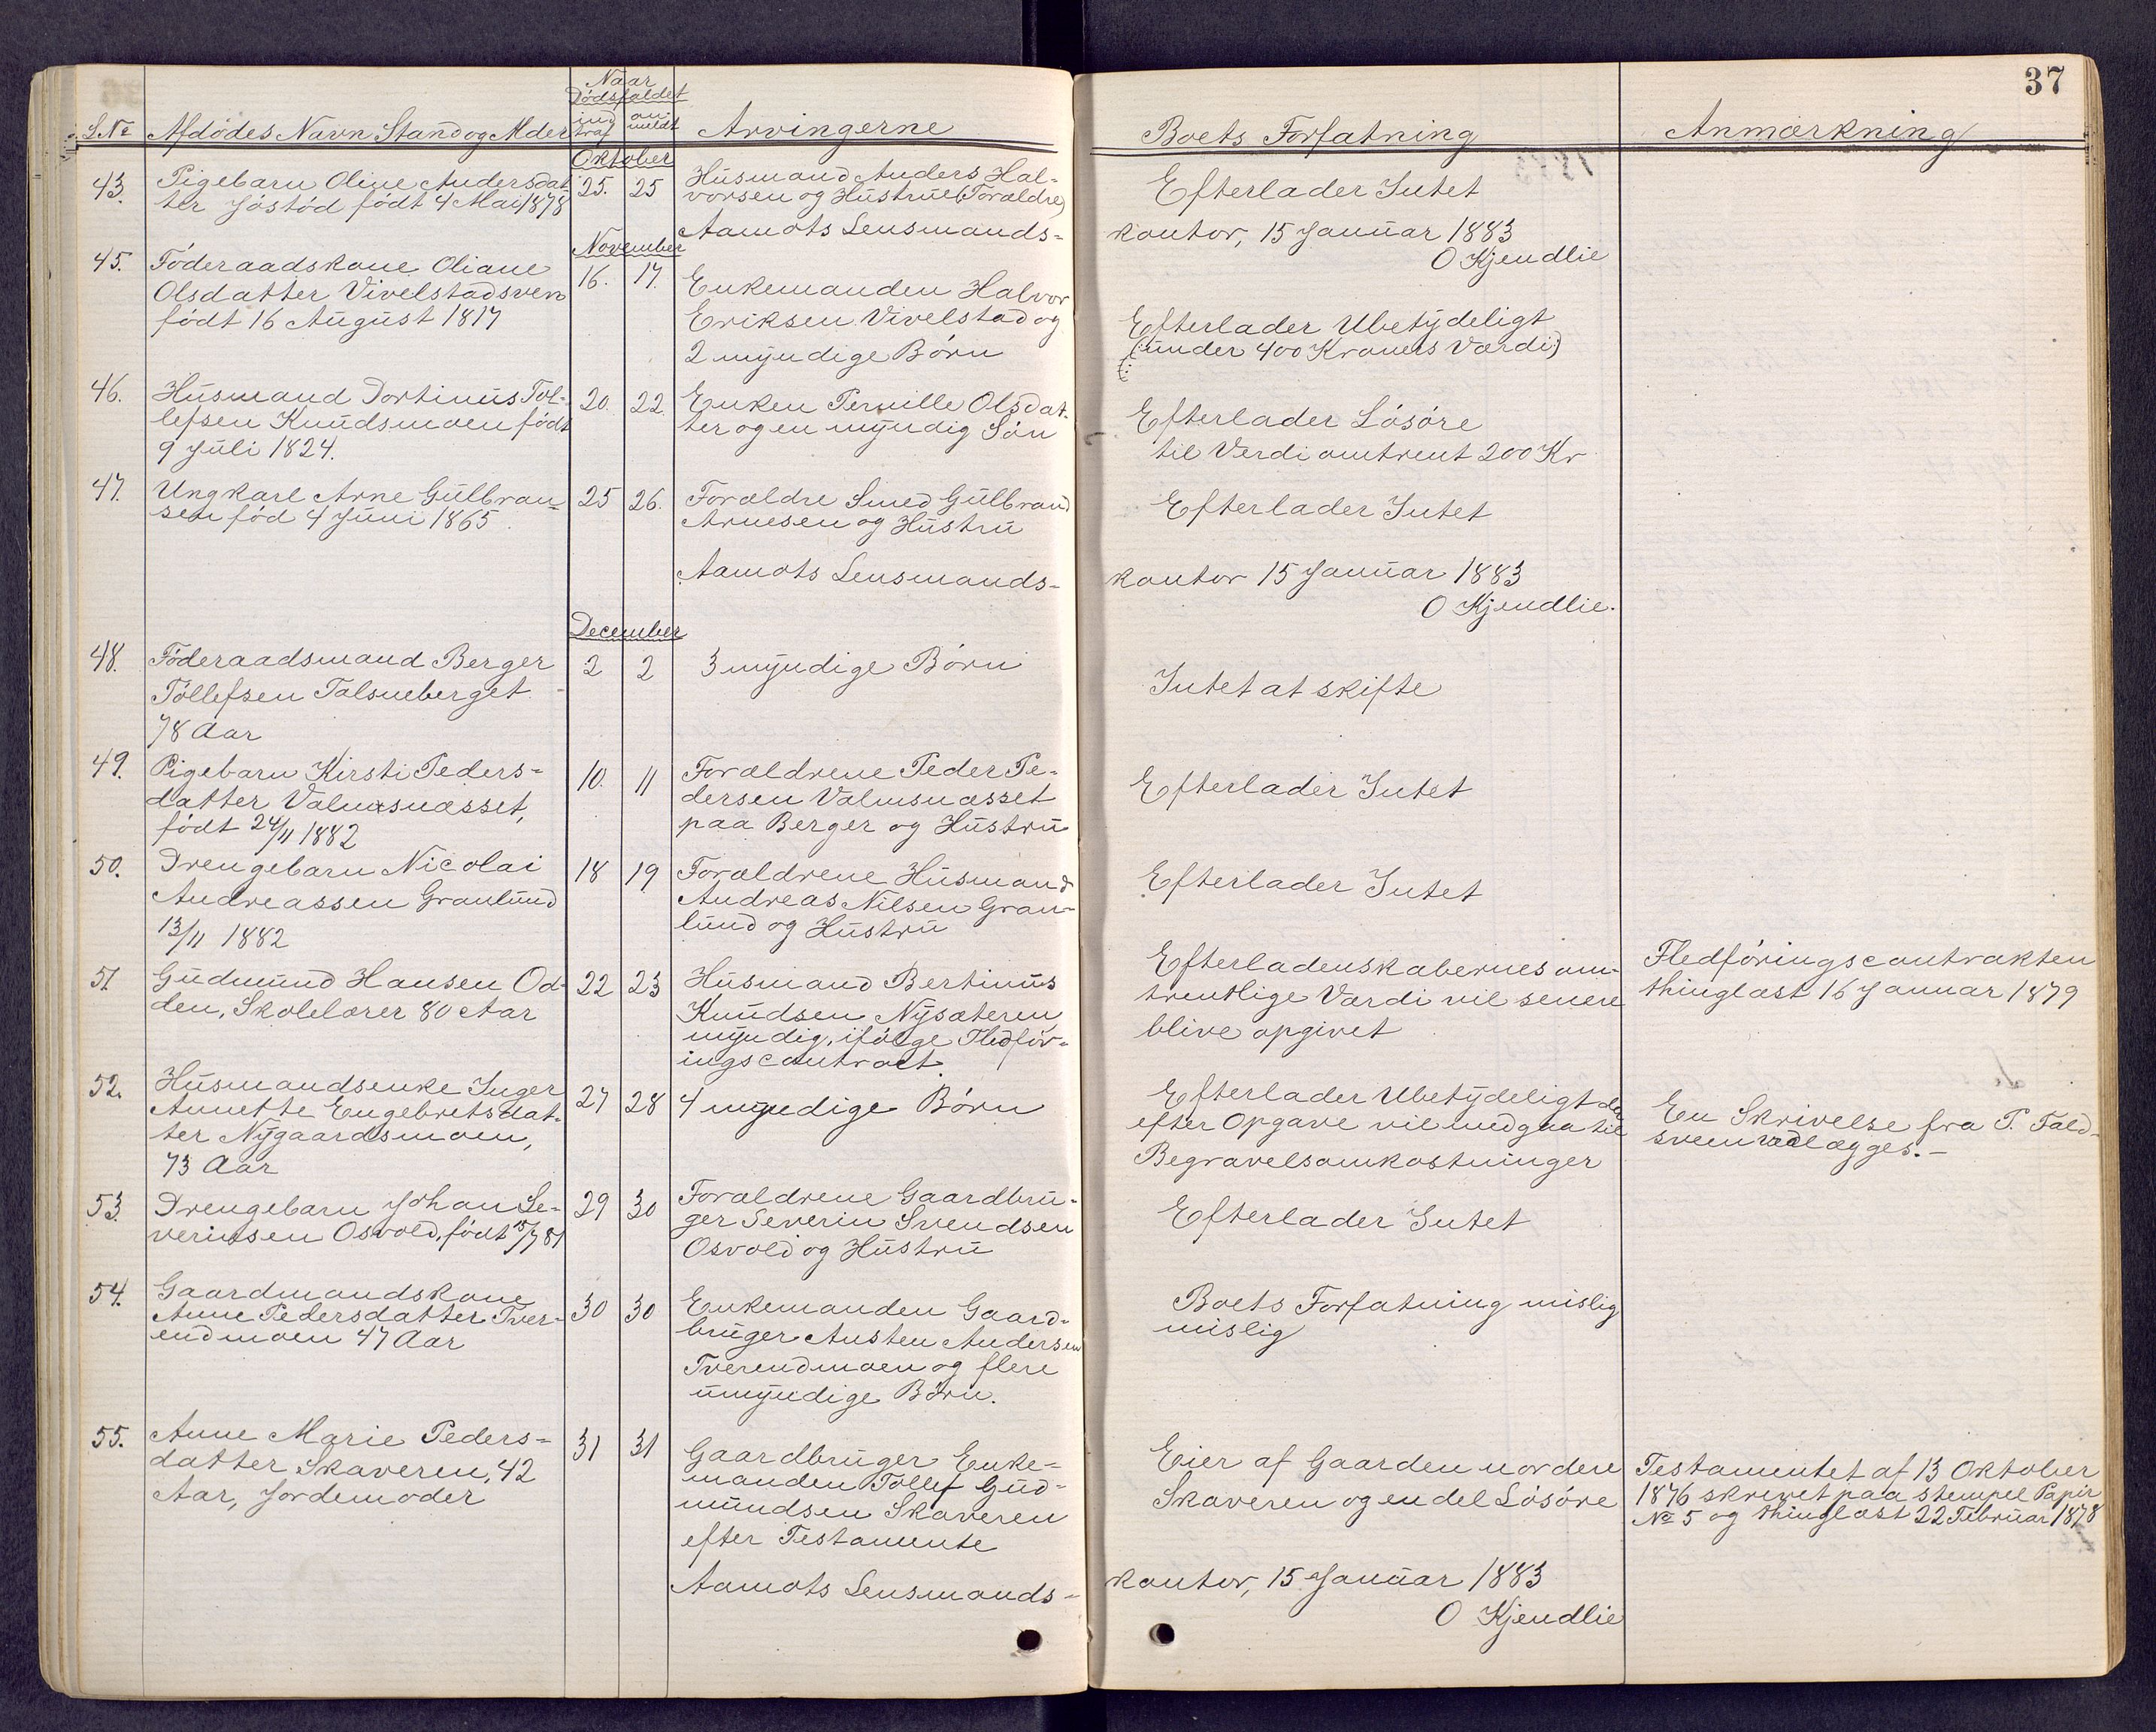 37
Naar
Dödsfaldet
L.No Afdödes Navn Stand og Alder indtraf anmeldt Arvingerne Boets Forfatning Anmærkning
Oktober
43. Pigebarn Oline Andersdat- 25. 25 Husmand Anders Hal- Efterlader Intet
ter født 4 Mai 1878 vorsen og Hustru (Forældre)
Aamots Lensmands- kontor, 15 Januar 1883
O Kjendlie
November
45. Föderaadskone Oliane 16. 17. Enkemanden Halvor Efterlader Ubetydeligt
Olsdatter Vivelstadsven Eriksen Vivelstad og (: under 400 Kroners Værdi)
født 16 August 1817 2 myndige Børn
46. Husmand Dortinus Tol- 20. 22. Enken Pernille Olsdat- Efterlader Løsøre
lefsen Knudsmoen født ter og en myndig Søn til Verdi omtrent 200 Kr
9 Juli 1824.
47. Ungkarl Arne Gulbran- 25 26. Forældre Smed Gulbrand Efterlader Intet
sen fød 4 Juni 1865. Arnesen og Hustru
Aamots Lensmands- kontor 15 Januar 1883
O Kjendlie.
December
48. Föderaadsmand Berger 2 2 3 myndige Børn Intet at skifte
Tollefsen Talsneberget.
78 Aar
49. Pigebarn Kirsti Peders- 10. 11 Forældrene Peder Pe- Efterlader Intet
datter Valmsnæsset, dersen Valmsnæsset
født 24/11 1882 paa Berger og Hustru
50. Drengebarn Nicolai 18 19 Forældrene Husmand Efterlader Intet
Andreassen Granlund Andreas Nilsen Gran-
13/11 1882 lund og Hustru
51 Gudmund Hansen Od- 22 23 Husmand Bertinus Efterladenskabernes om- Fledføringscontrakten
den, Skolelærer 80 Aar Knudsen Nysæteren trentlige Værdi vil senere thinglæst 16 Januar 1879
myndig, ifølge Fledfør- blive opgivet
ingscontract.
52. Husmandsenke Inger 27 28 4 myndige Børn Efterlader Ubetydeligt der En Skrivelse fra P. Fald-
Annette Engebretsdat- efter Opgave vil medgaa til sveen vedlægges.-
ter Nygaardsmoen, Begravelsomkostninger
73 Aar
53. Drengebarn Johan Se- 29 30 Forældrene Gaardbru- Efterlader Intet
verinsen Osvold, født 15/7 81 ger Severin Svendsen
Osvold og Hustru
54. Gaardmandskone 30 30 Enkemanden Gaard- Boets Forfatning mislig
Anne Pedersdatter Tver- bruger Austen Andersen mislig
endmoen 47 Aar Tverendmoen og flere
umyndige Børn.
55. Anne Marie Peders- 31 31 Gaardbruger Enke- Eier af Gaarden nordere Testamentet af 13 Oktober
datter Skaveren, 42 manden Tollef Gud- Skaveren og en del Løsøre 1876 skrevet paa stempel Papir
Aar, Jordemoder mundsen Skaveren No 5 og thinglæst 22 Februar 1878
efter Testamente
Aamots Lensmands- kontor, 15 Januar 1883
O Kjendlie